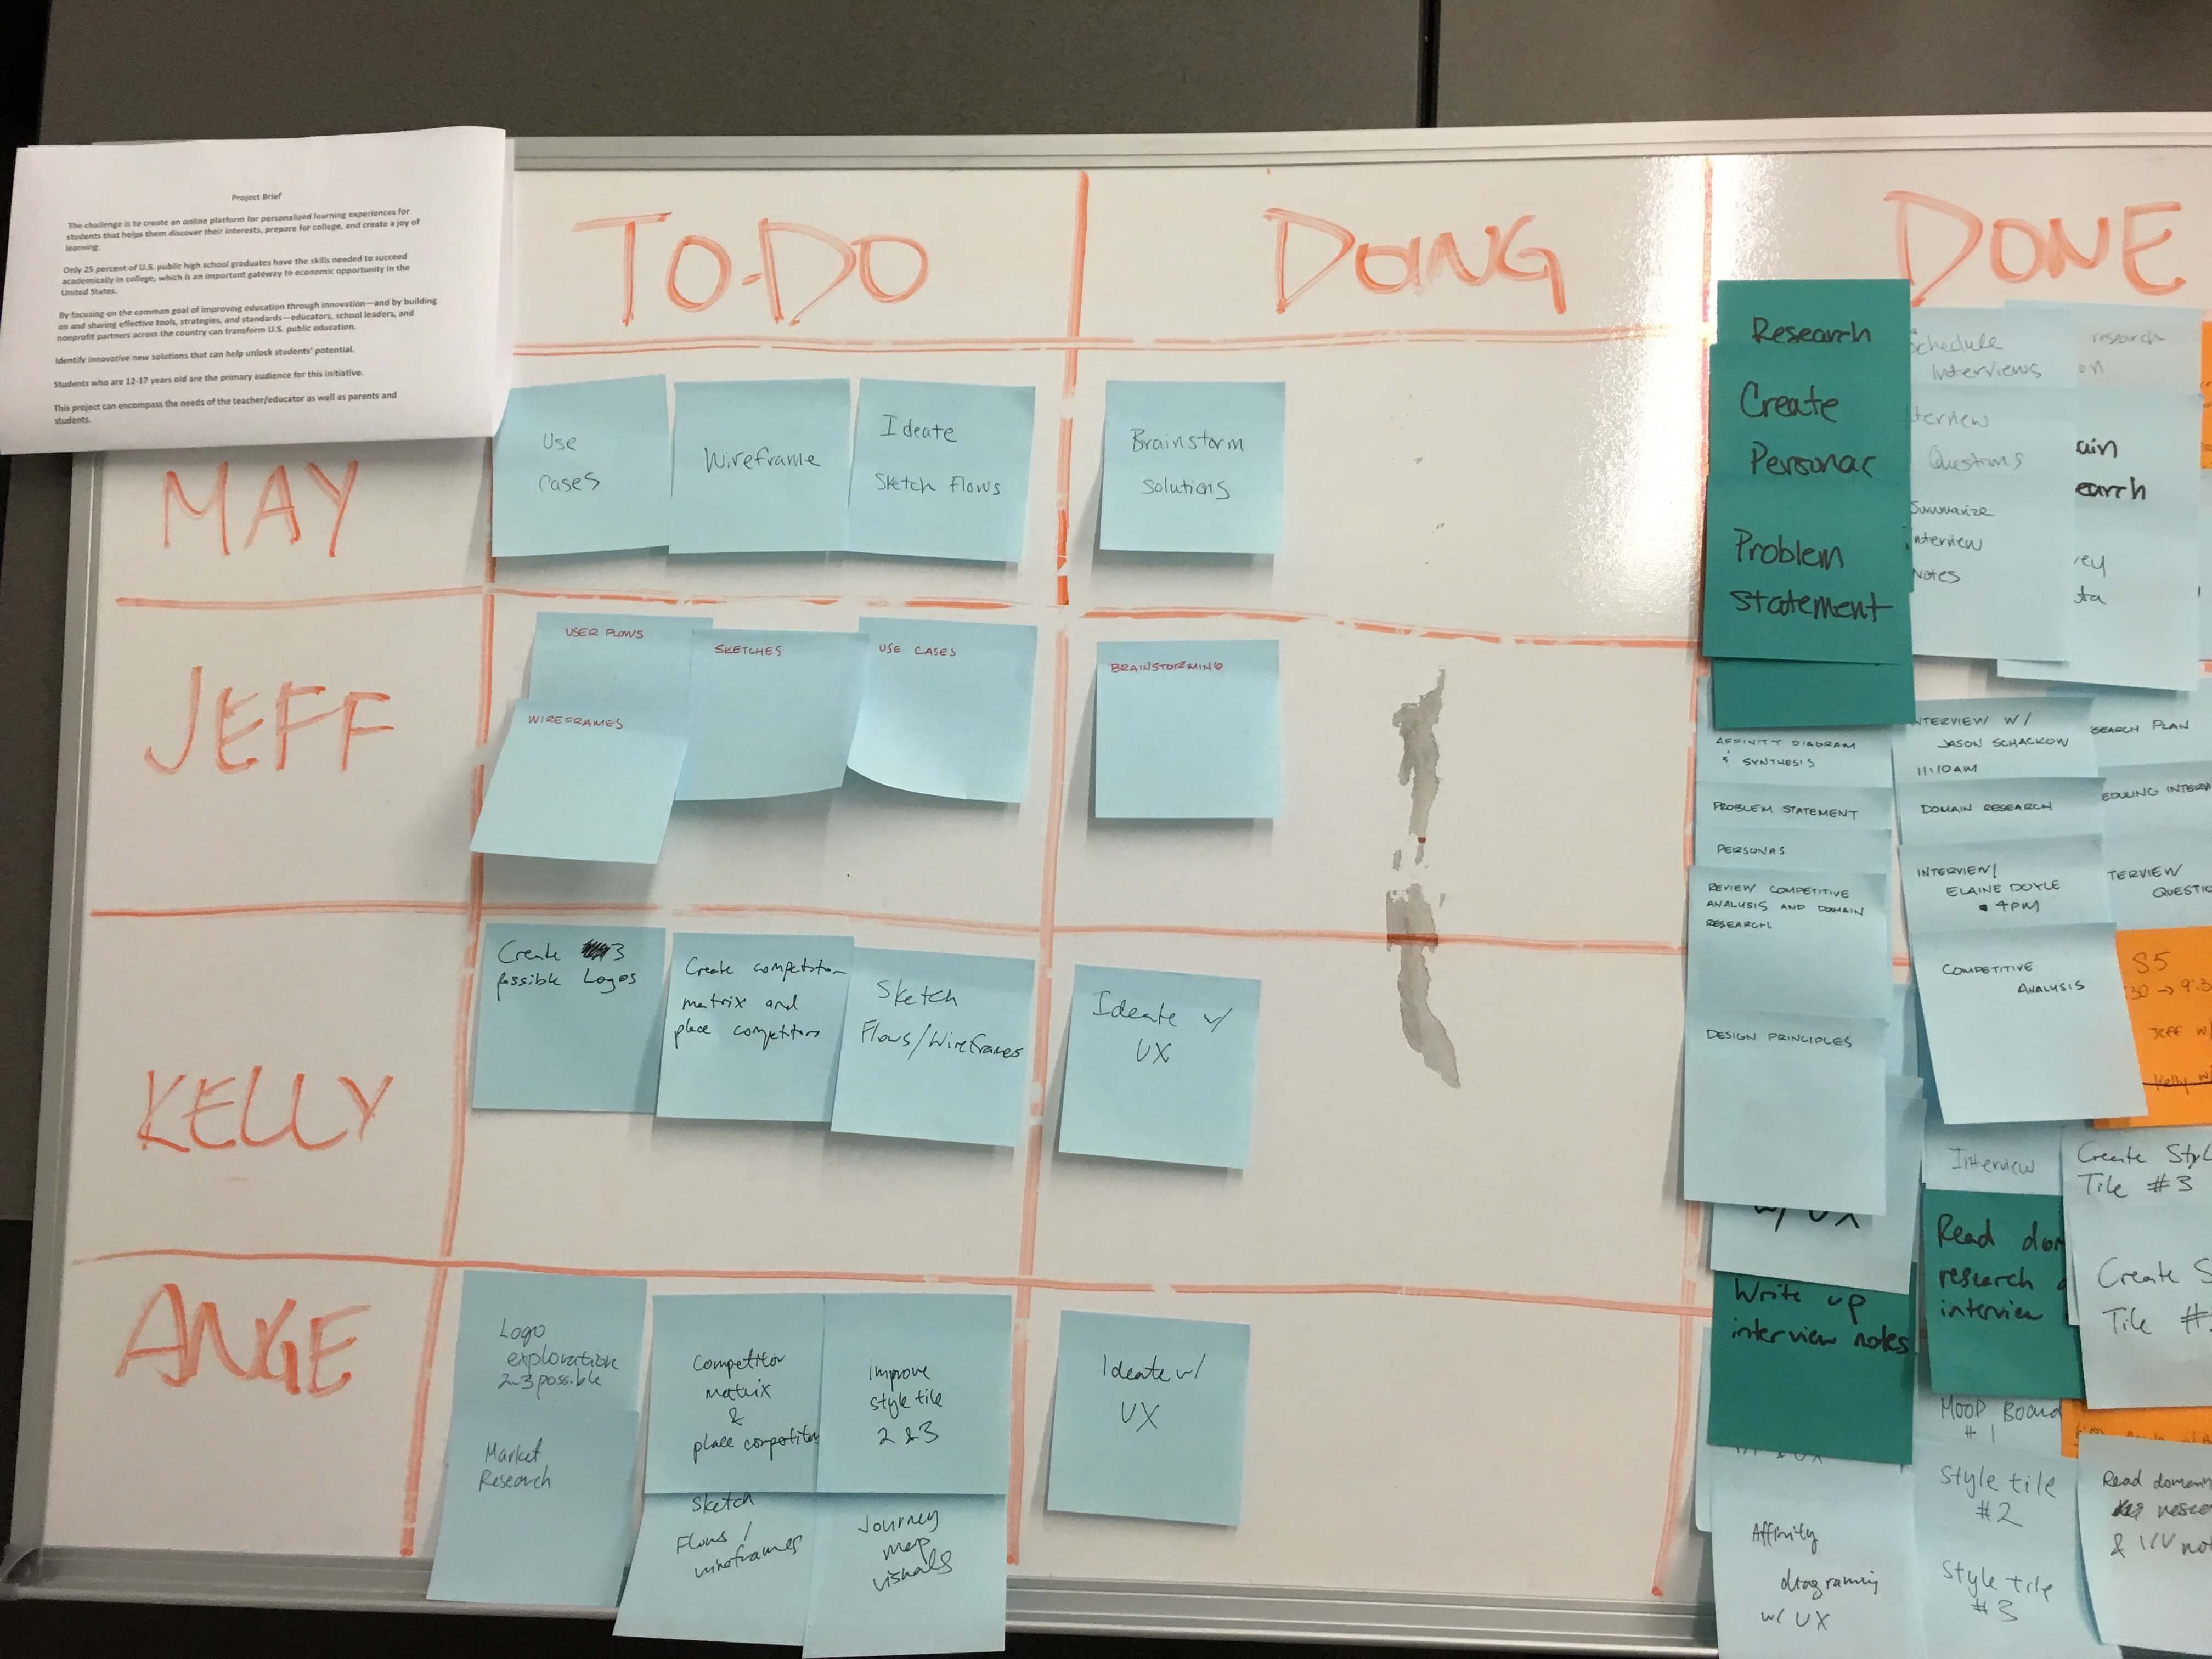 Project Brief
The challenge is to create an online platform for personalized learning experiences for
students that helps them discover their interests, prepare for college, and create a joy of
learning.
Only 25 percent of U.S. public high school graduates have the skills needed to succeed
academically in college, which is an important gateway to economic opportunity in the
United States.
By focusing on the common goal of improving education through innovation—and by building
on and sharing effective tools, strategies, and standards—educators, school leaders, and
nonprofit partners across the country can transform U.S. public education.
Identify innovative new solutions that can help unlock students' potential.
Students who are 12-17 years old are the primary audience for this initiative.
This project can encompass the needs of the teacher/educator as well as parents and
students.
TO-DO
DOING
DONE
MAY
Use
Cases
Wireframe
Ideate
Sketch Flows
Brainstorm
Solutions
Research
Create
Personac
Problem
Statement
Schedule
Interviews
terview
Questions
Summarize
Interview
Notes
research
on
ain
earch
rey
ta
JEFF
USER FLOWS
WIREFRAMES
SKETCHES
USE CASES
BRAINSTORMING
AFFINITY DIAGRAM
& SYNTHESIS
PROBLEM STATEMENT
PERSONAS
REVIEW COMPETITIVE
ANALYSIS AND DOMAIN
RESEARCH
DESIGN PRINCIPLES
INTERVIEW W/
JASON SCHACKOW
11:10AM
DOMAIN RESEARCH
INTERVIEW/
ELAINE DOYLE
4PM
COMPETITIVE
ANALYSIS
SEARCH PLAN
EDULING INTERV
TERVIEW
QUESTIO
S5
:30 → 9:3
Jeff w/
Kelly w/
KELLY
Create 3
possible Logos
Create competitor
matrix and
place competitors
Sketch
Flows/Wireframes
Ideate w/
UX
w/ UX
Write up
interview notes
Interview
Read dom
research
interview
Create Styl
Tile #3
Create S
Tile #
ANGE
Logo
exploration
2-3 possible
Market
Research
Competitor
matrix
&
place competitor
Improve
style tile
2 & 3
Sketch
Flows /
wireframes
Journey
map
visuals
Ideate w/
UX
Affinity
diagraming
w/ UX
Mood Board
#1
Style tile
#2
Style tile
#3
Read domain
& I/V not